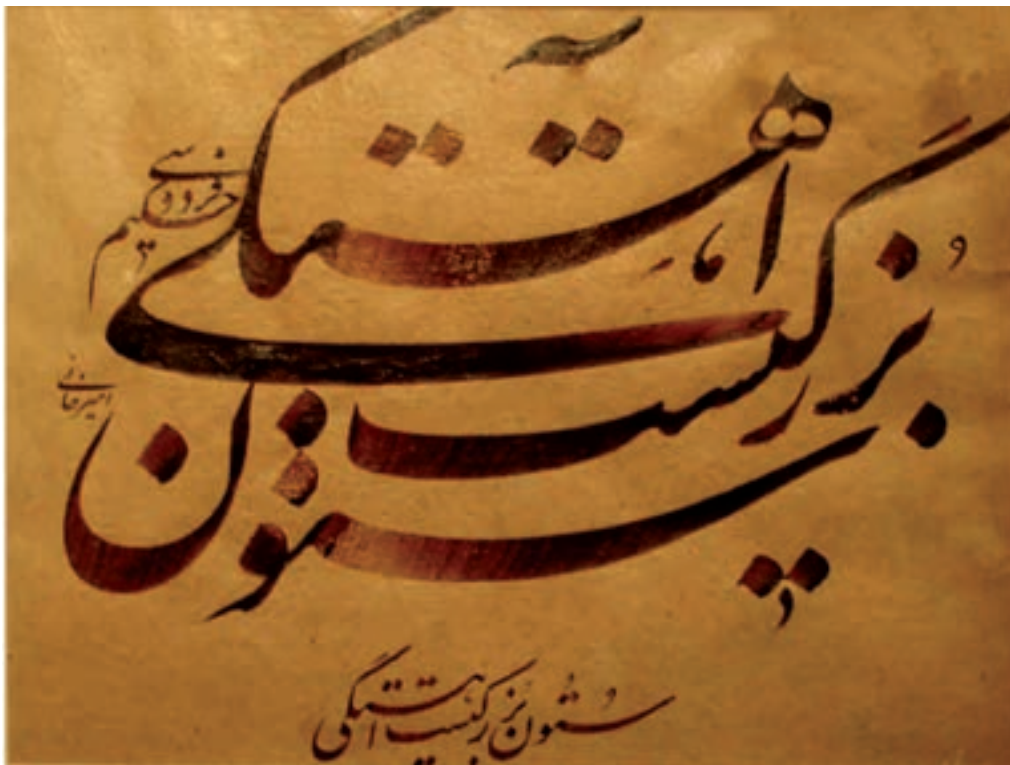 ستون بزرگیست آهستگی
حکیم فردوسی
امیرخانی
ستون بزرگیست آهستگی